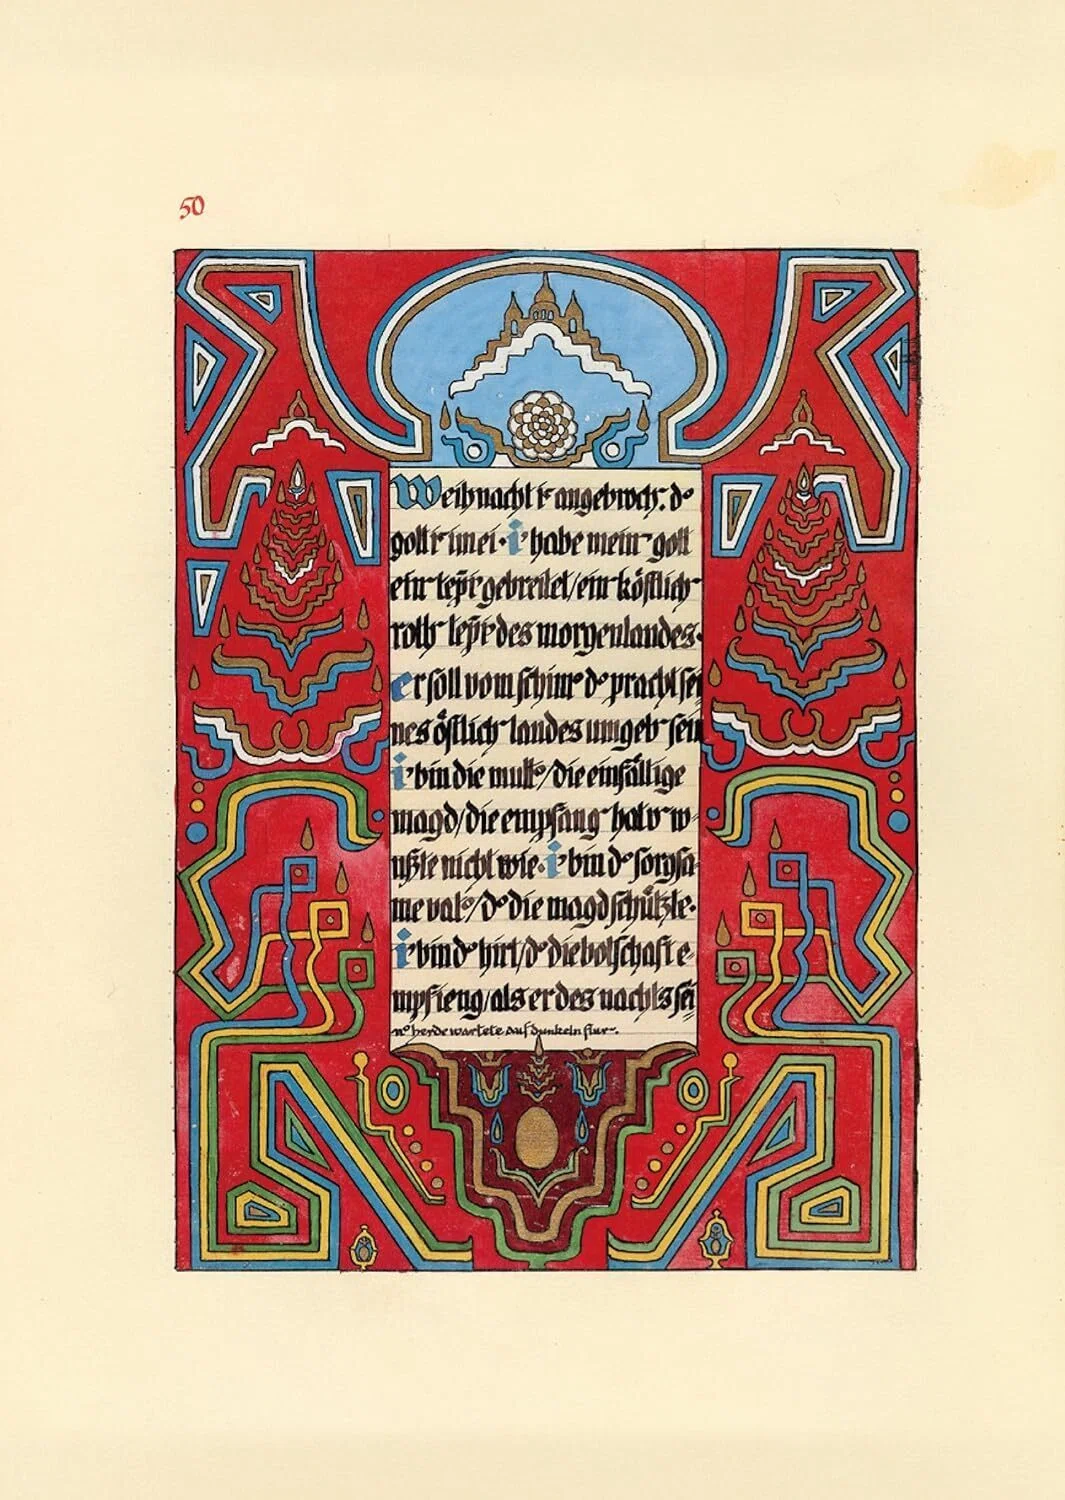 50
Weihnacht ist angebroch. d
gott ist im ei. i habe mein gott
ein tepi gebreitet/ein köstlich
roth tepi des morgenlandes.
er soll vom schim d pracht sei
nes östlich landes umgeb sein
i bin die mutt/die einfältige
magd/die empfang hat u w-
ußte nicht wie. i bin d sorgsa-
me vat/d die magd schützte.
i bin d hirt/d die botschaft e-
mpfieng/als er des nachts sei
n herde wartete auf dunkeln flur.